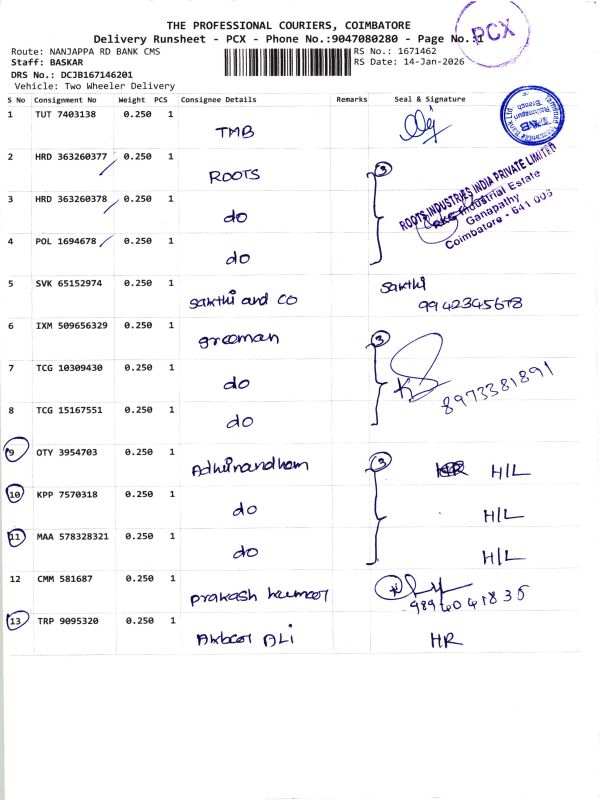 THE PROFESSIONAL COURIERS, COIMBATORE
Delivery Runsheet - PCX - Phone No.:9047080280 - Page No.:1
PCX
Route: NANJAPPA RD BANK CMS
RS No.: 1671462
Staff: BASKAR
RS Date: 14-Jan-2026
DRS No.: DCJB167146201
Vehicle: Two Wheeler Delivery
S No Consignment No Weight PCS Consignee Details Remarks Seal & Signature
1 TUT 7403138 0.250 1 TMB
2 HRD 363260377 0.250 1 ROOTS 3
ROOTS INDUSTRIES INDIA PRIVATE LIMITED
RKG Industrial Estate
Ganapathy
Coimbatore - 641 006
3 HRD 363260378 0.250 1 do
4 POL 1694678 0.250 1 do
5 SVK 65152974 0.250 1 sakthi and co sakthi
9942345678
6 IXM 509656329 0.250 1 greeman 3
7 TCG 10309430 0.250 1 do 8973381891
8 TCG 15167551 0.250 1 do
9 OTY 3954703 0.250 1 3 H/L
10 KPP 7570318 0.250 1 do H/L
11 MAA 578328321 0.250 1 do H/L
12 CMM 581687 0.250 1 prakash kumar
9894041835
13 TRP 9095320 0.250 1 Akbar ALi HR